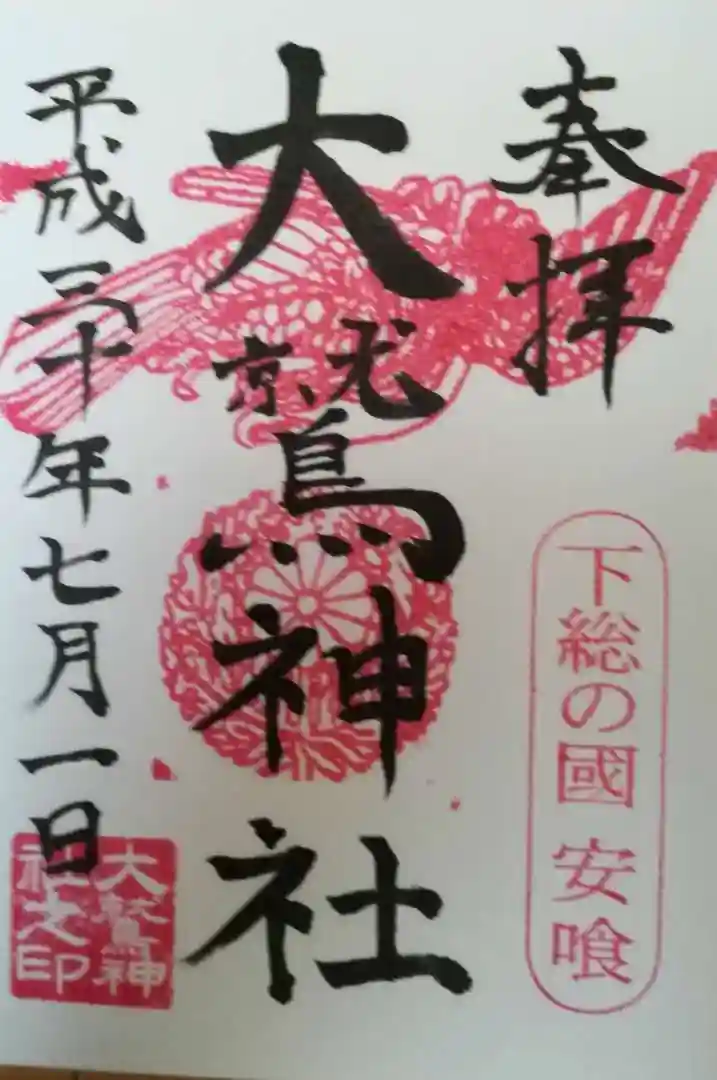 奉拝
下総の國 安喰
大鷲神社
平成三十年七月一日
大鷲神
社之印